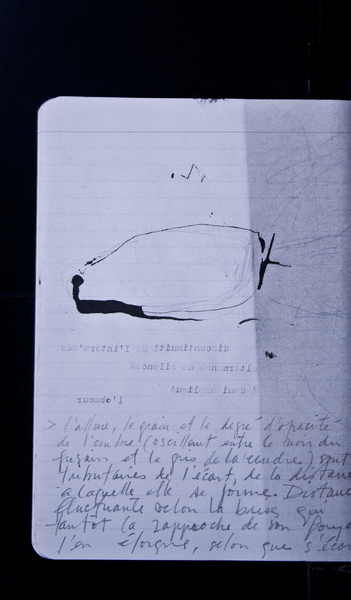 discontinuité de l'inters
alternance de silences
demi expliqué
l'obscur
> l'allure, le grain et le degré d'opacité
de l'ombre (oscillant entre le noir du
fusain et le gris de la cendre) sont
tributaires de l'écart, de la distance
à laquelle elle se forme. Distance
fluctuante selon la brise qui
tantôt la rapproche de son
l'en éloigne, selon que s'éca